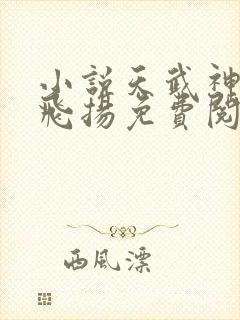 小説天武神
飛揚免費閱
西風漂